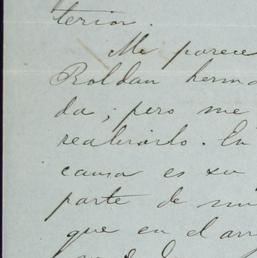 terior.
Me parece
Roldan herma
da; pero me
realizarlo. En
causa es su
parte de mi
que en el arr